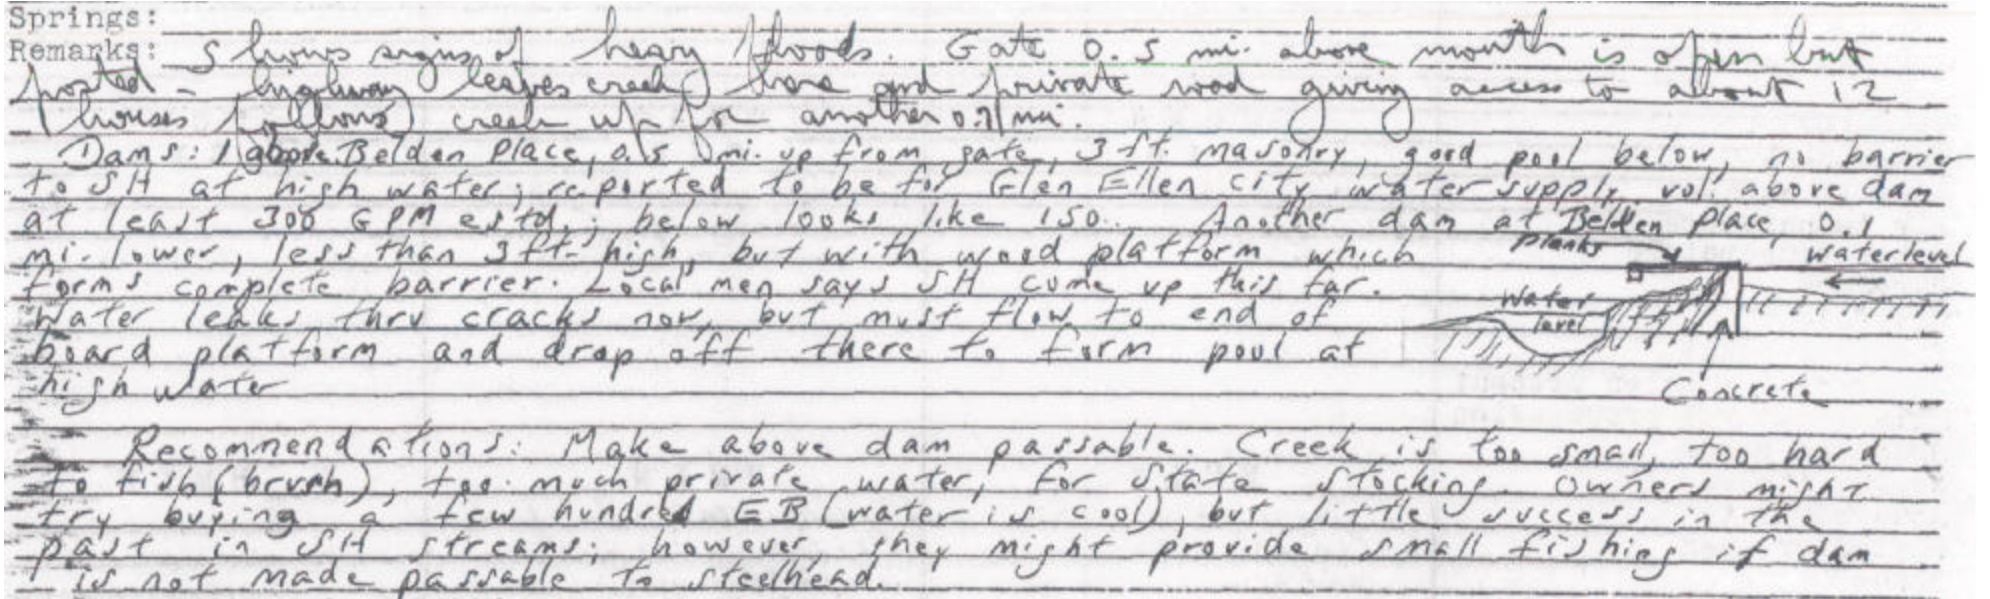 Springs:
Remarks: Shows signs of heavy floods. Gate 0.5 mi. above mouth is open but
posted - highway leaves creek here and private road giving access to about 12
houses follows creek up for another 0.7 mi.
Dams: 1 above Belden Place, 0.5 mi. up from gate, 3 ft. masonry, good pool below, no barrier
to SH at high water; reported to be for Glen Ellen city water supply, vol. above dam
at least 300 GPM estd.; below looks like 150. Another dam at Belden place, 0.1
mi. lower, less than 3 ft. high, but with wood platform which
forms complete barrier. Local men says SH come up this far.
Water leaks thru cracks now, but must flow to end of
board platform and drop off there to form pool at
high water
planks
water level
water
level
Concrete
Recommendations: Make above dam passable. Creek is too small, too hard
to fish (brush), too much private water, for State stocking. Owners might
try buying a few hundred EB (water is cool), but little success in the
past in SH streams; however, they might provide small fishing if dam
is not made passable to steelhead.